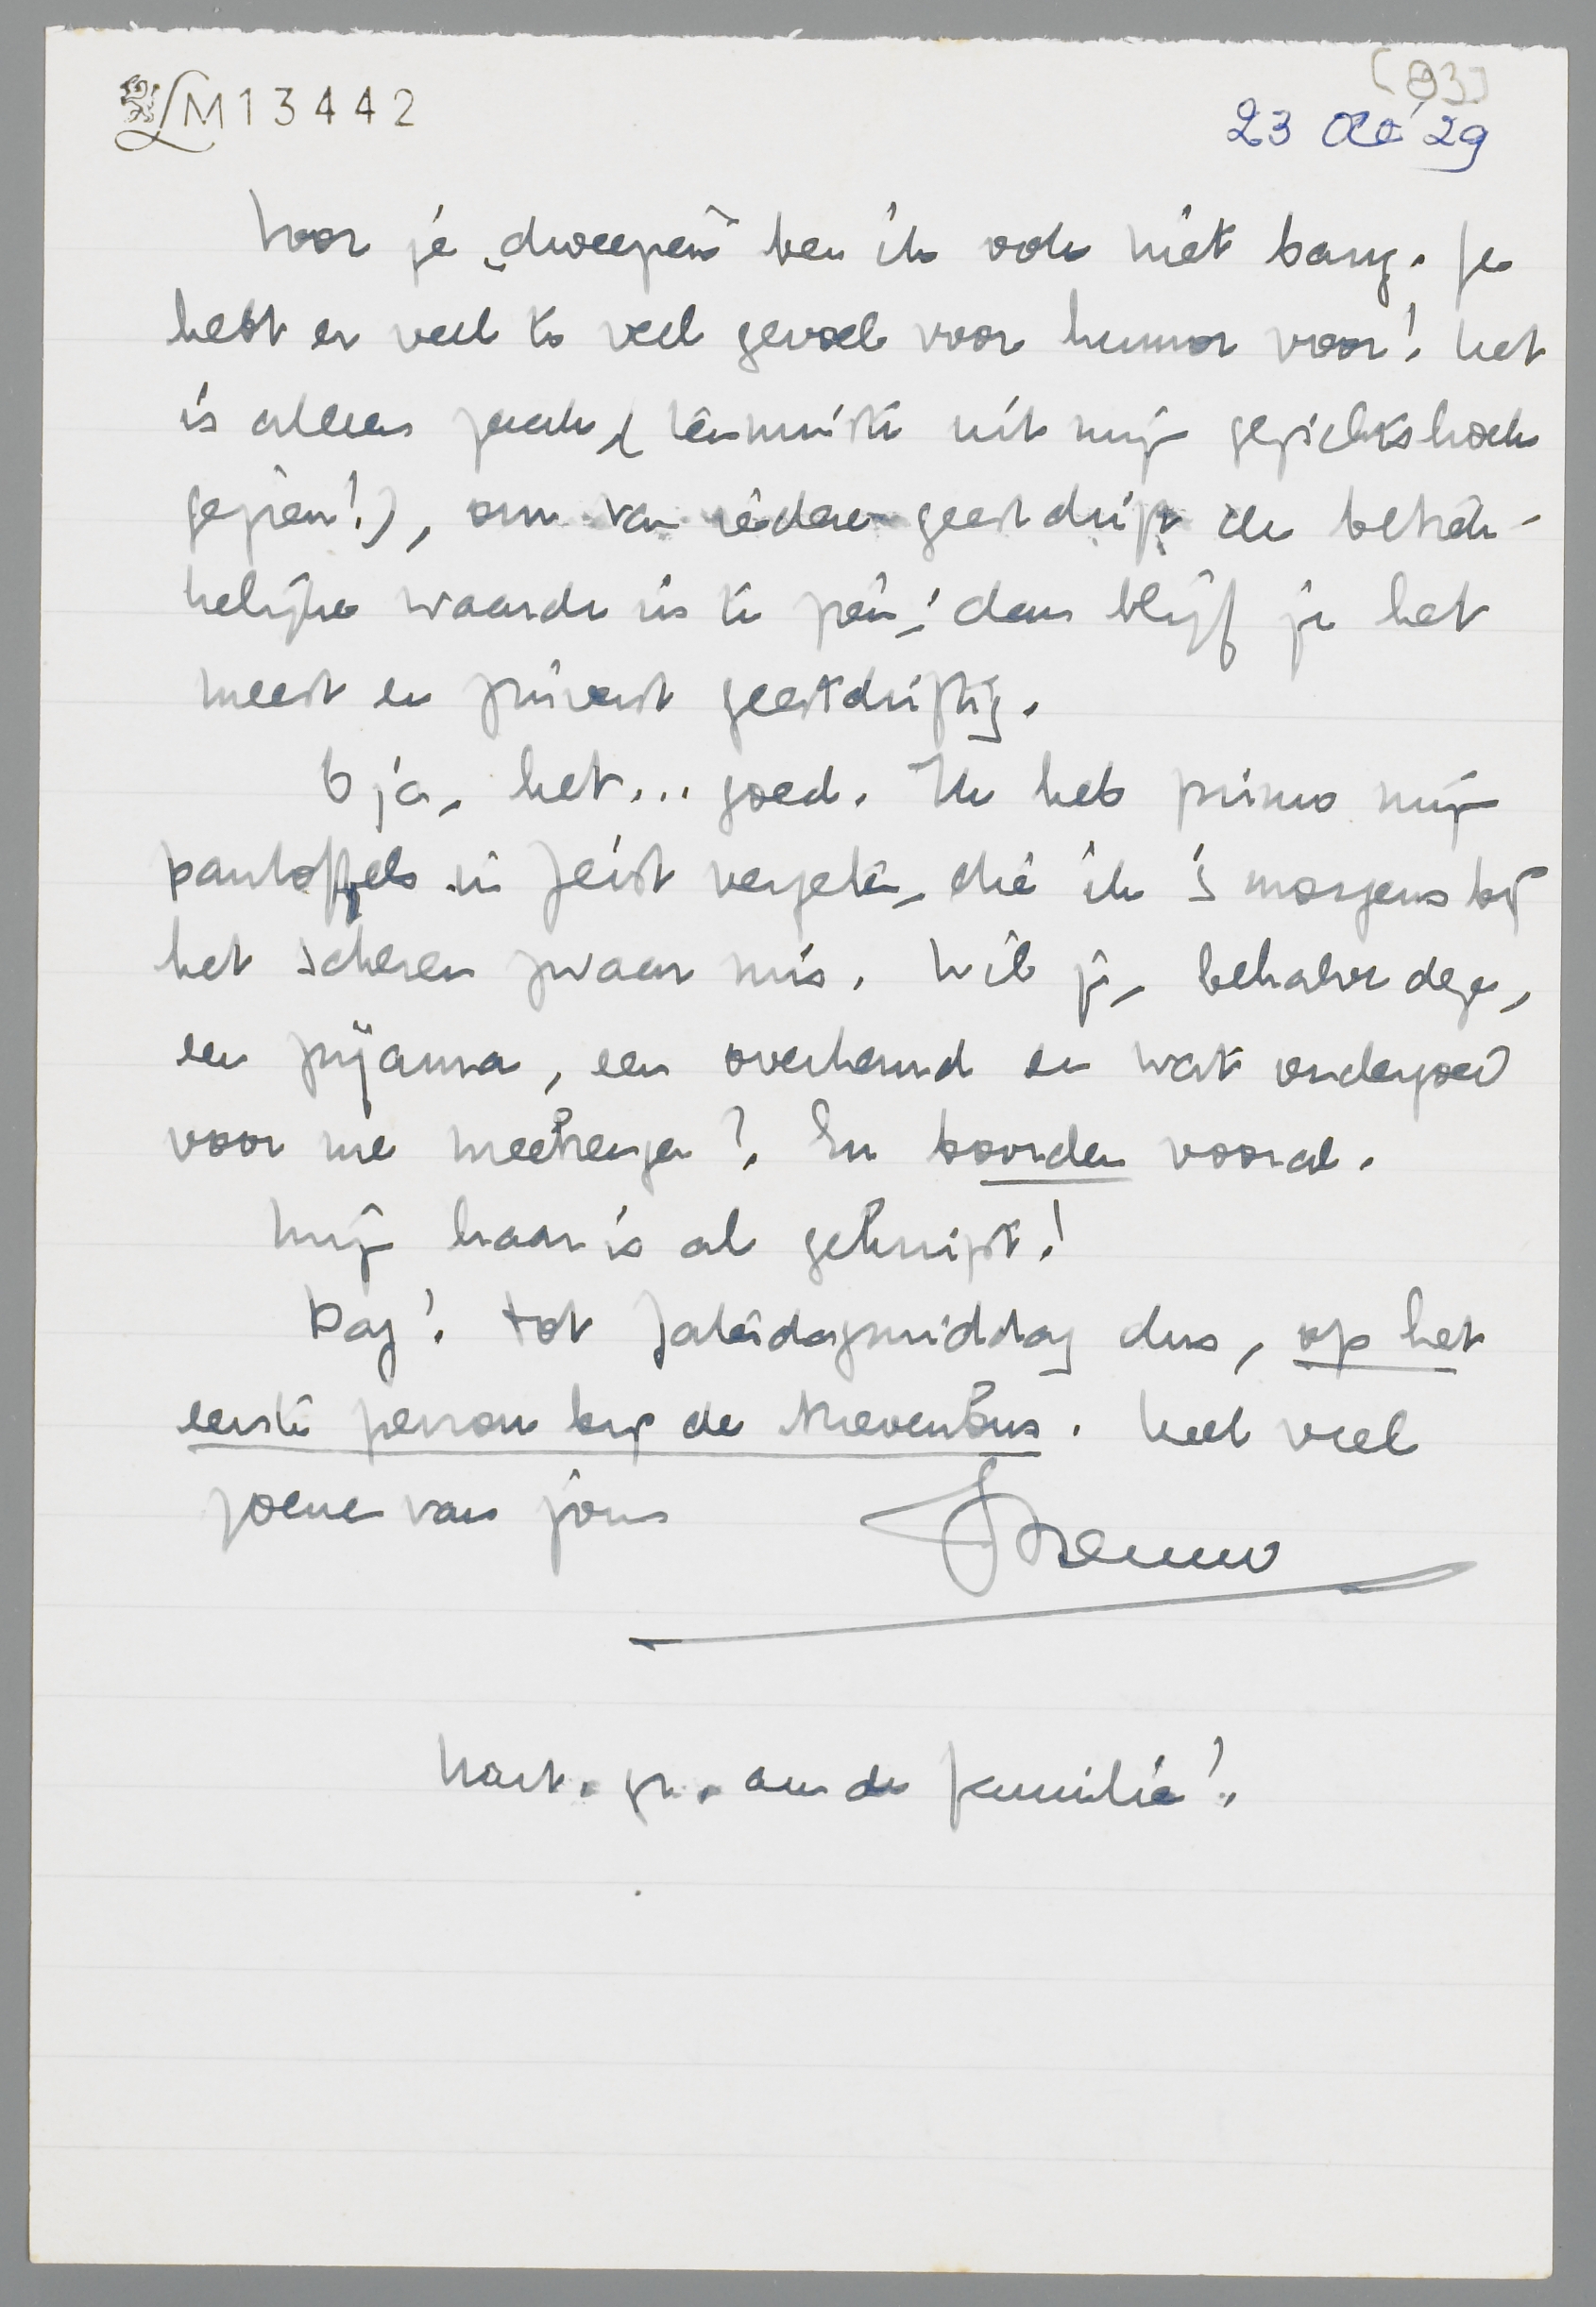 LM13442
[93]
23 Oct '29
Voor je „dweepen” ben ik ook niet bang. Je
hebt er veel te veel gevoel voor humor voor! Het
is alleen zaak, (tenminste uit mijn gezichtshoek
gezien!), om van iedere geestdrift de betrek-
kelijke waarde in te zien; dan blijf je het
meest en zuiverst geestdriftig.
O ja, het... goed. Ik heb primo mijn
pantoffels in Zeist vergeten, die ik 's morgens bij
het scheren zwaar mis. Wil je, behalve deze,
een pyjama, een overhemd en wat ondergoed
voor me meebrengen? En boorden vooral.
Mijn haar is al geknipt!
Dag! tot Zaterdagmiddag dus, op het
eerste perron bij de brievenbus. Heel veel
zoenen van jouw
Menno
Hart. gr. aan de familie!